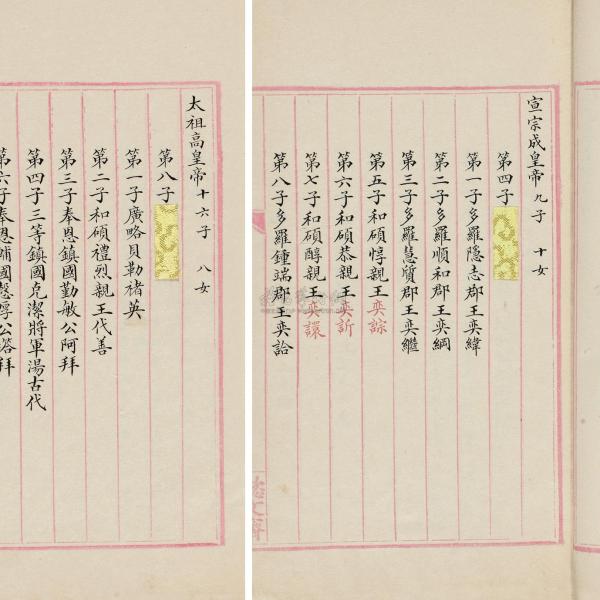 宣宗成皇帝 九子 十女
第四子
第一子多羅隱志郡王奕緯
第二子多羅順和郡王奕綱
第三子多羅慧質郡王奕繼
第五子和碩惇親王奕誴
第六子和碩恭親王奕訢
第七子和碩醇親王奕譞
第八子多羅鍾端郡王奕詥
太祖高皇帝 十六子 八女
第八子
第一子廣略貝勒褚英
第二子和碩禮烈親王代善
第三子奉恩鎮國勤敏公阿拜
第四子三等鎮國克潔將軍湯古代
第六子奉恩輔國愨厚公塔拜